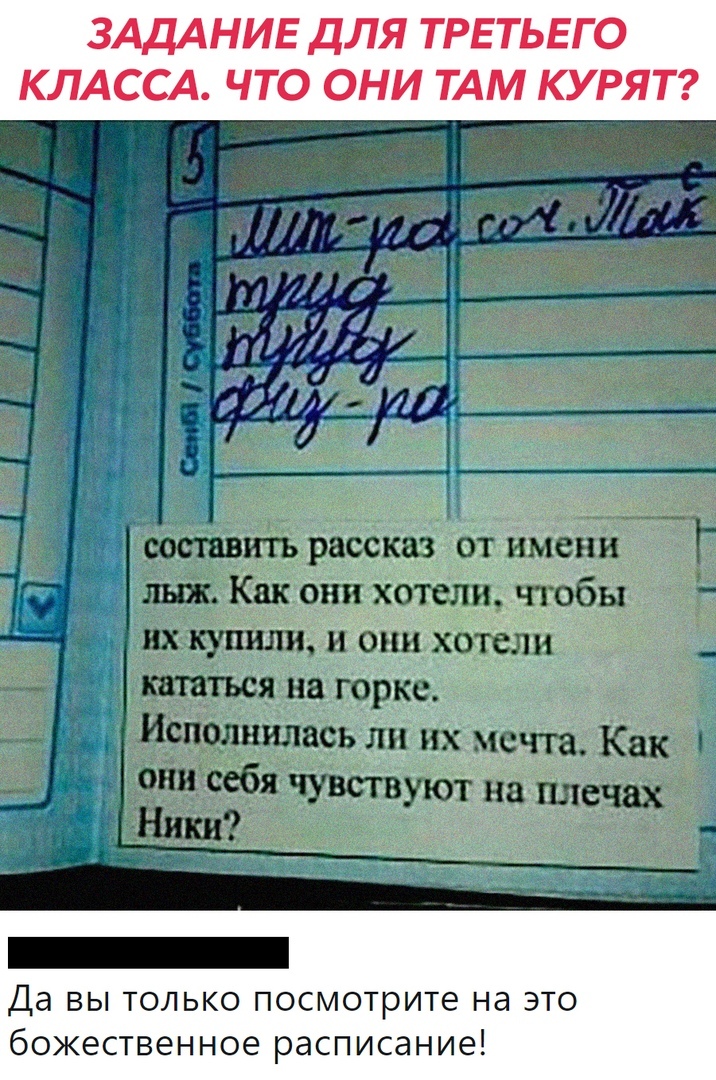 ЗАДАНИЕ ДЛЯ ТРЕТЬЕГО
КЛАССА. ЧТО ОНИ ТАМ КУРЯТ?
5
Сенбі / Суббота
лит-ра соч.
труд
труд
физ-ра
составить рассказ от имени
лыж. Как они хотели, чтобы
их купили, и они хотели
кататься на горке.
Исполнилась ли их мечта. Как
они себя чувствуют на плечах
Ники?
Да вы только посмотрите на это
божественное расписание!